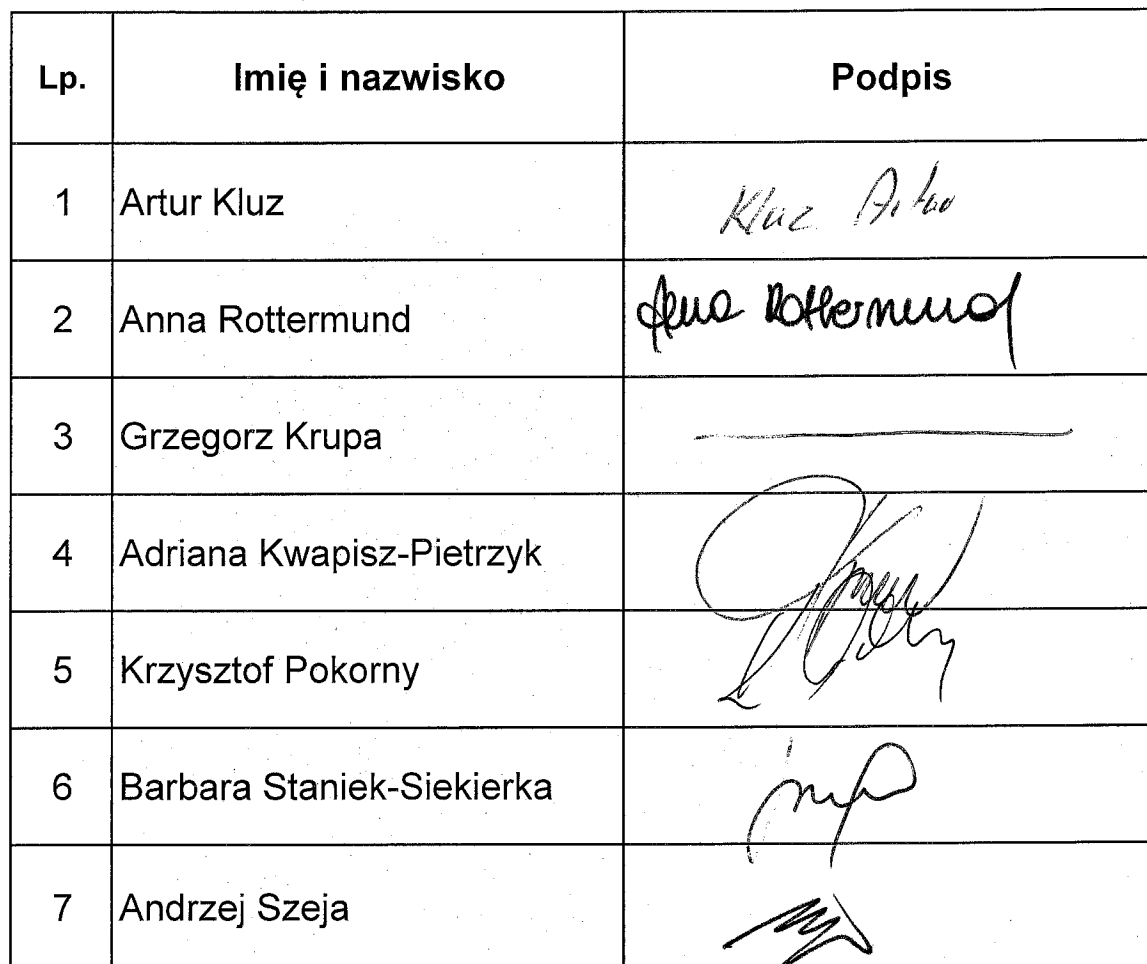 Lp. Imię i nazwisko Podpis
1 Artur Kluz Kluz Artur
2 Anna Rottermund Anna Rottermund
3 Grzegorz Krupa
4 Adriana Kwapisz-Pietrzyk
5 Krzysztof Pokorny
6 Barbara Staniek-Siekierka
7 Andrzej Szeja